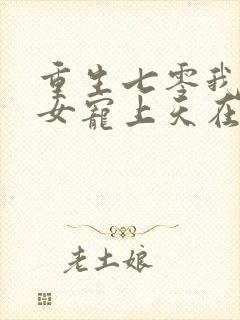 重生七零我
女宠上天在
老土娘